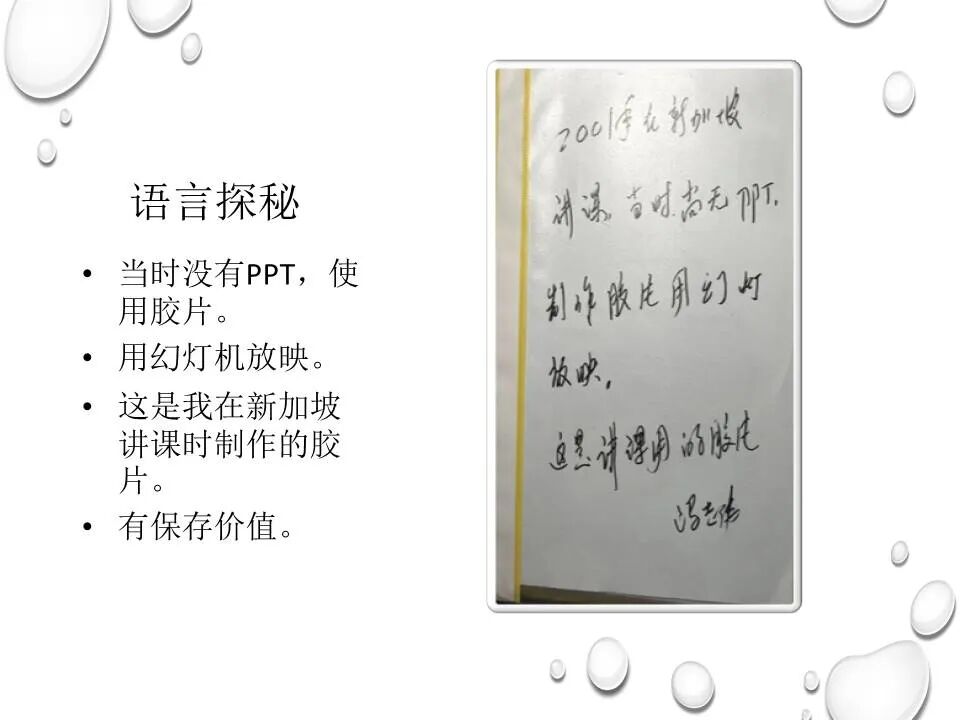 语言探秘
• 当时没有PPT，使
用胶片。
• 用幻灯机放映。
• 这是我在新加坡
讲课时制作的胶
片。
• 有保存价值。
2001年在新加坡
讲课。当时尚无PPT.
制作胶片用幻灯
放映。
这是讲课用的胶片
冯志伟